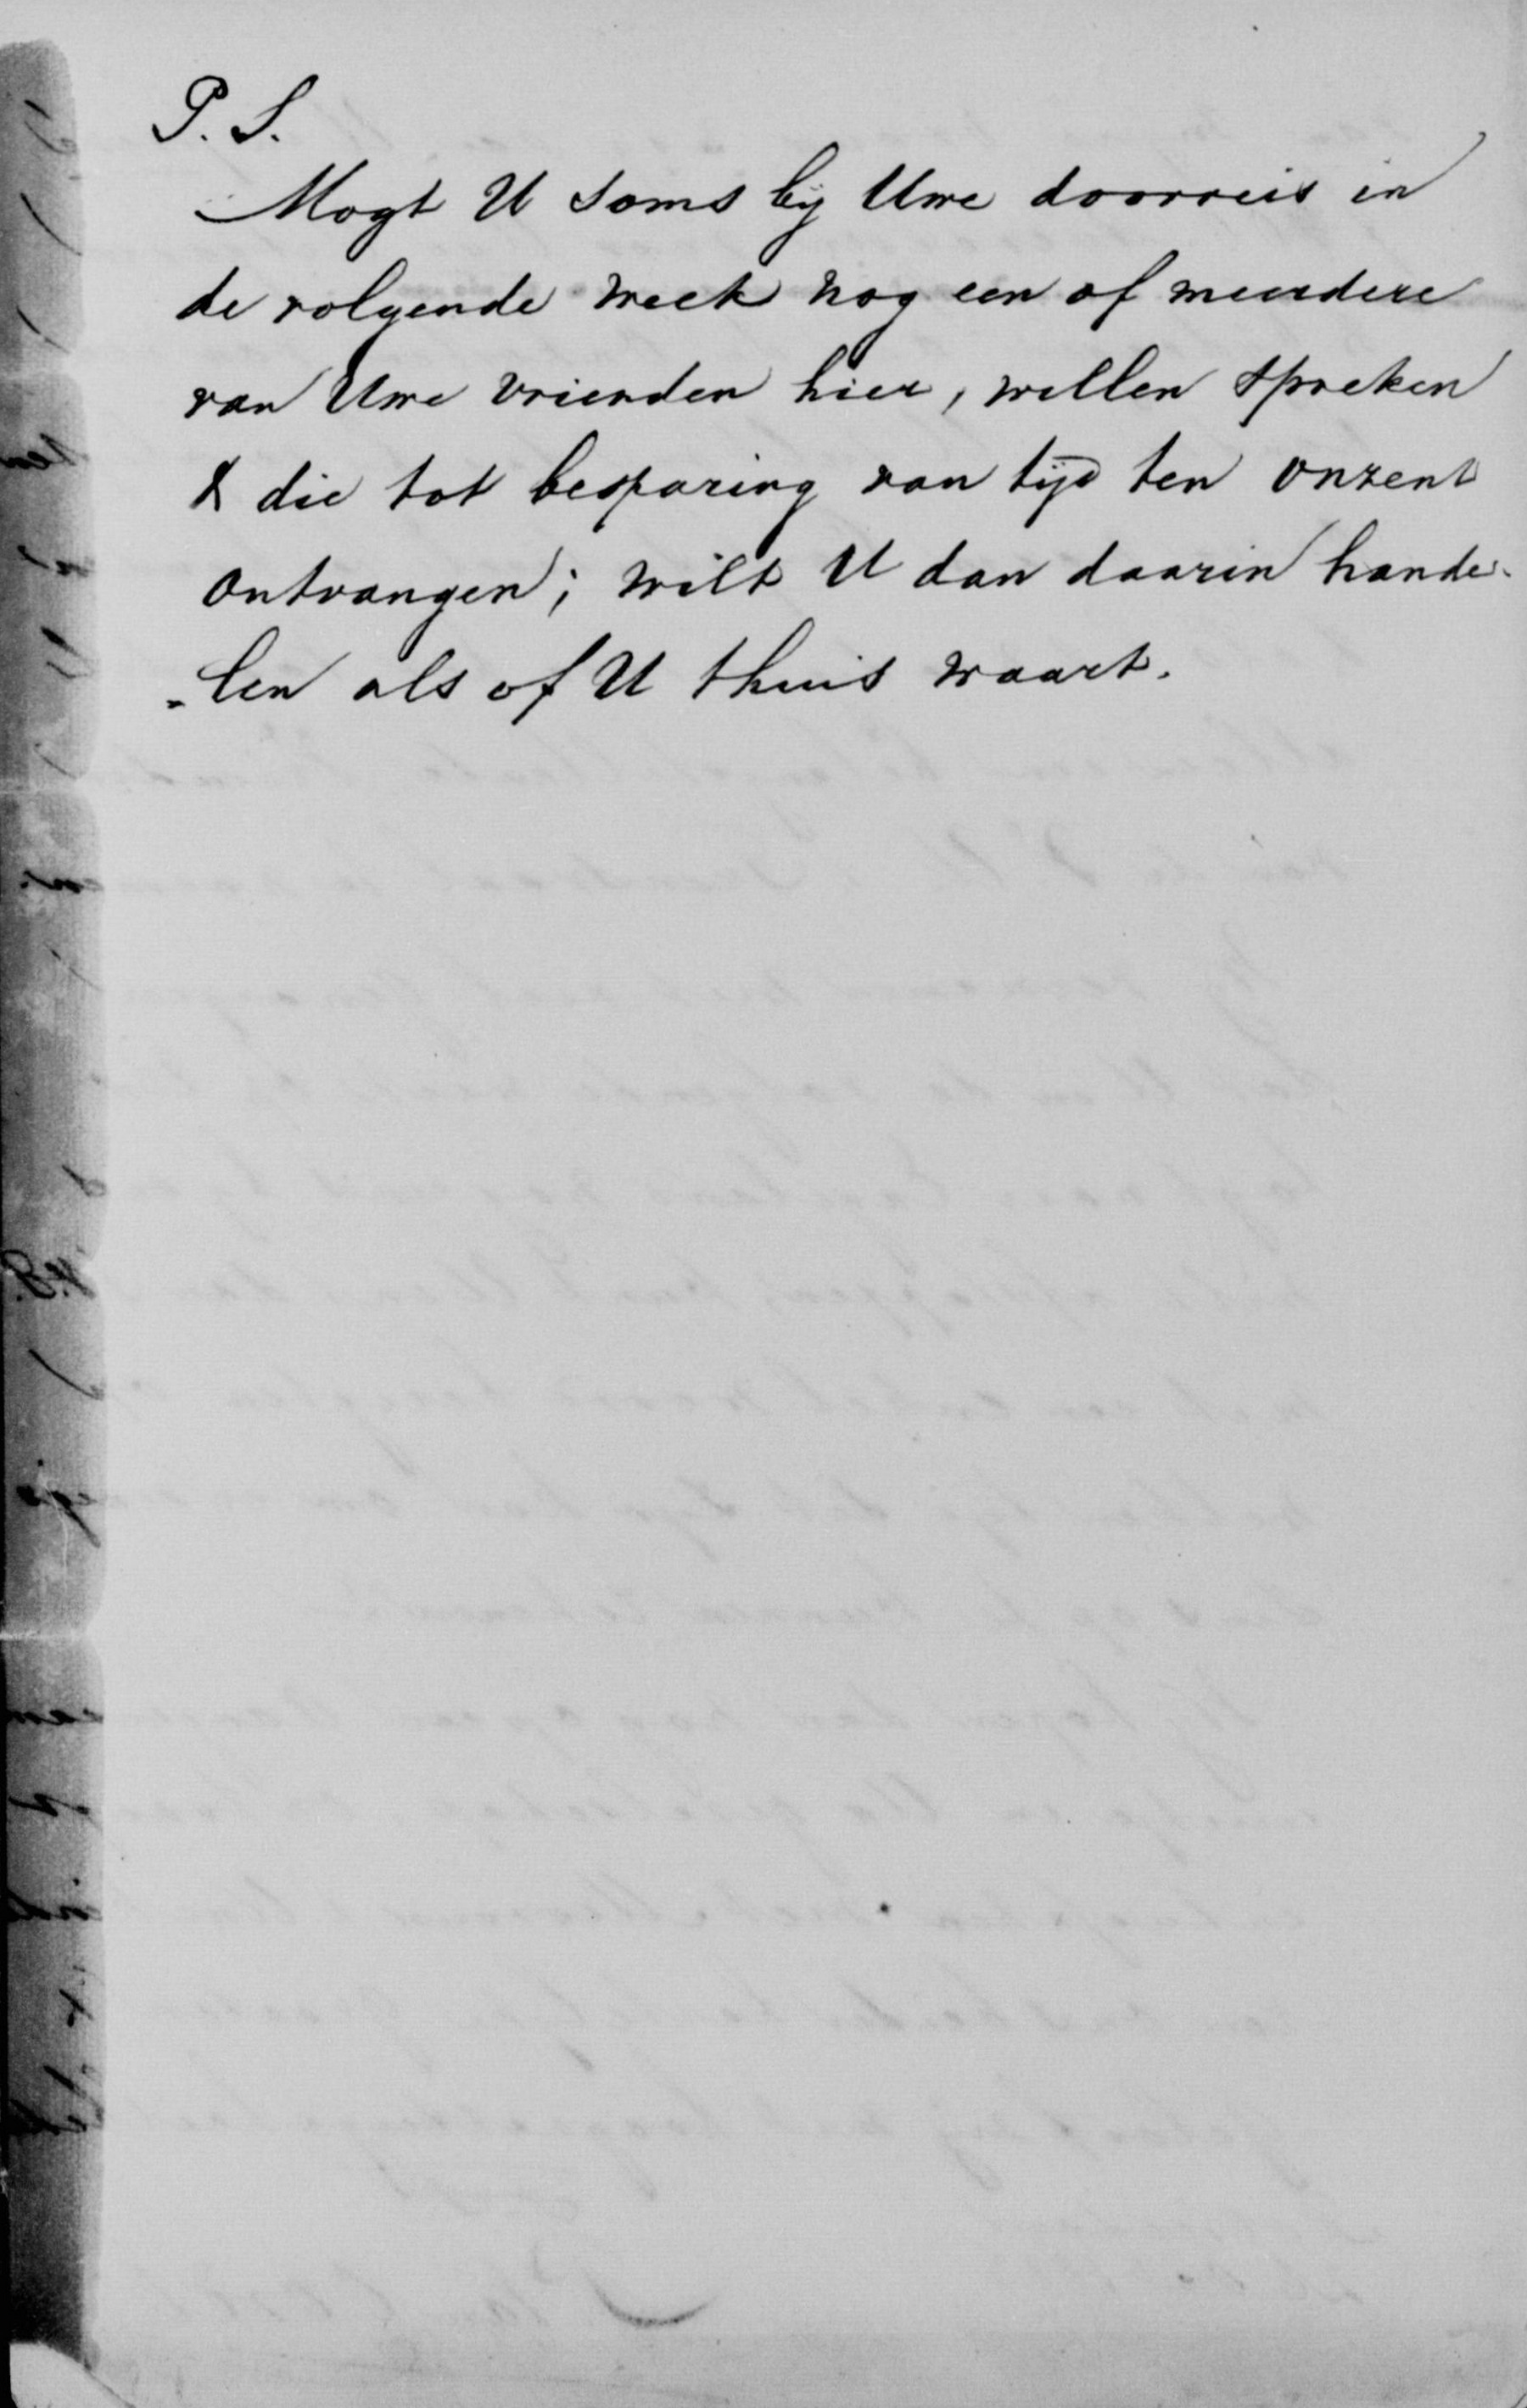 P. S.
Mogt U soms bij Uwe doorreis in
de volgende week nog een of meerdere
van Uwe vrienden hier, willen spreken
& die tot besparing van tijd ten onzent
ontvangen; wilt U dan daarin hande-
-len als of U thuis waart.